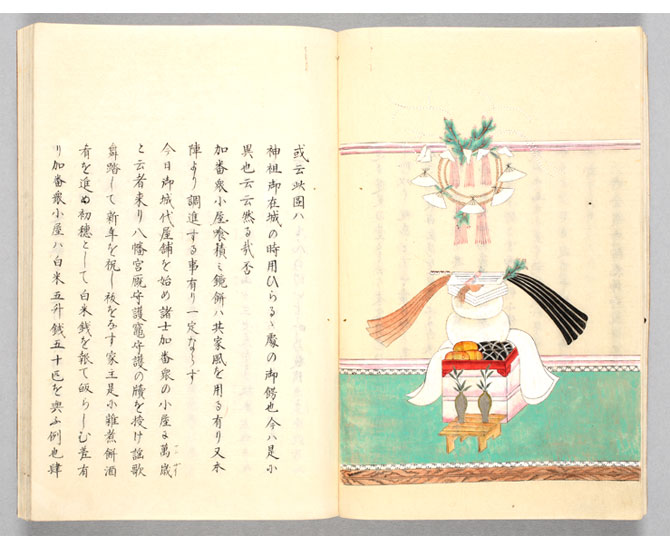 或云此図ハ
神祖御在城の時用ひらるゝ處の御餝也今ハ是小
異也云云然る哉否
加番衆小屋喰積ミ鏡餅ハ共家風を用る有り又本
陣より調進する事有り一定ならず
今日御城代屋舗を始め諸士加番衆の小屋に萬歳
と云者来り八幡宮厩守護竈守護の牘を授け謡歌
舞踏して新年を祝し祓をなす家主是小雜煮餅酒
肴を進め初穂として白米銭を報て皈らしむ
加番衆小屋ハ白米五升銭五十疋を與ふ例也